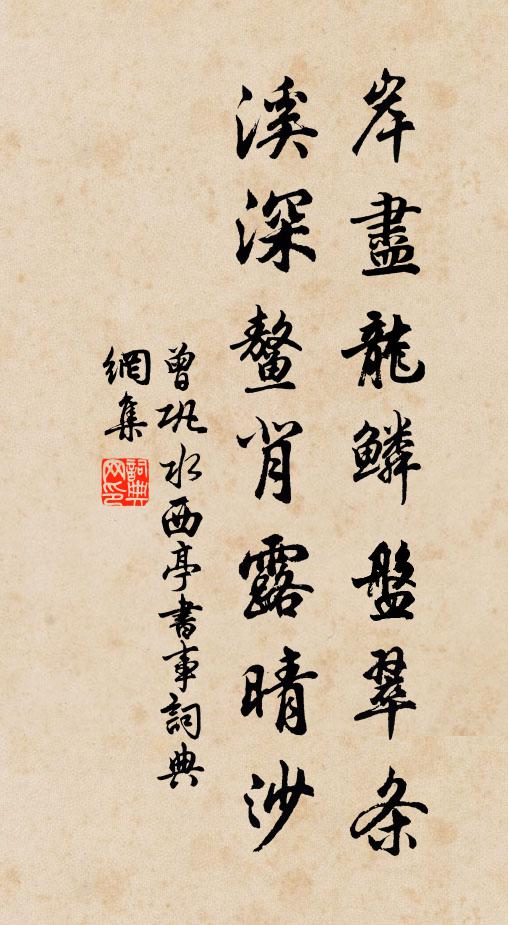 岸盡龍鱗盤翠条
溪深鰲背露晴沙
曾巩水西亭書事詞典
網集
詞典網印